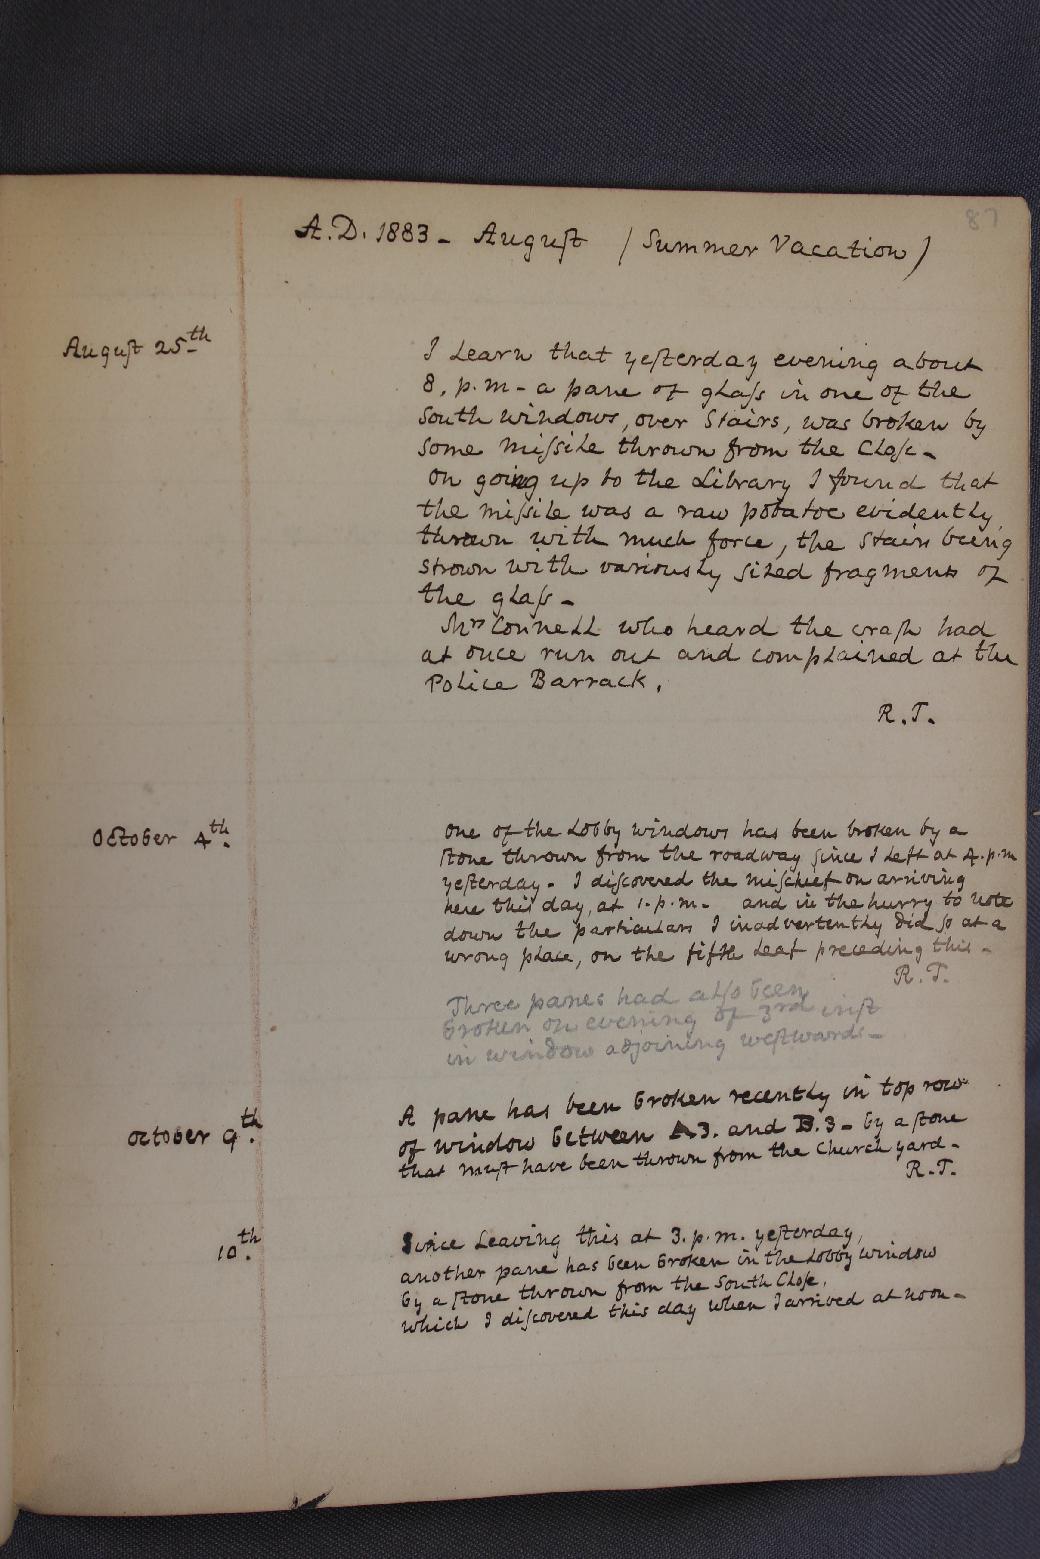 87
A.D. 1883 - August (Summer Vacation)
August 25th
I learn that yeſterday evening about
8, p.m - a pane of glaſs in one of the
South windows, over Stairs, was broken by
Some miſsile thrown from the Cloſe -
on going up to the Library I found that
the miſsile was a raw potatoe evidently
thrown with much force, the Stairs being
strown with variously sized fragments of
the glaſs -
Mrs Connell who heard the craſh had
at once run out and complained at the
Police Barrack.
R.T.
October 4th.
one of the Lobby windows has been broken by a
ſtone thrown from the roadway ſince I left at 4.p.m
yeſterday - I diſcovered the miſchief on arriving
here this day, at 1.p.m. - and in the hurry to note
down the particulars I inadvertently did ſo at a
wrong place, on the fifth leaf preceding this -
R.T.
Three panes had alſo been
broken on evening of 3rd inſt
in window adjoining weſtwards -
October 9th.
A pane has been broken recently in top row
of window between A3. and B.3 - by a ſtone
that muſt have been thrown from the Church yard -
R.T.
10th.
Since Leaving this at 3.p.m. yeſterday,
another pane has been broken in the Lobby window
by a ſtone thrown from the South Cloſe,
which I diſcovered this day when I arrived at noon -